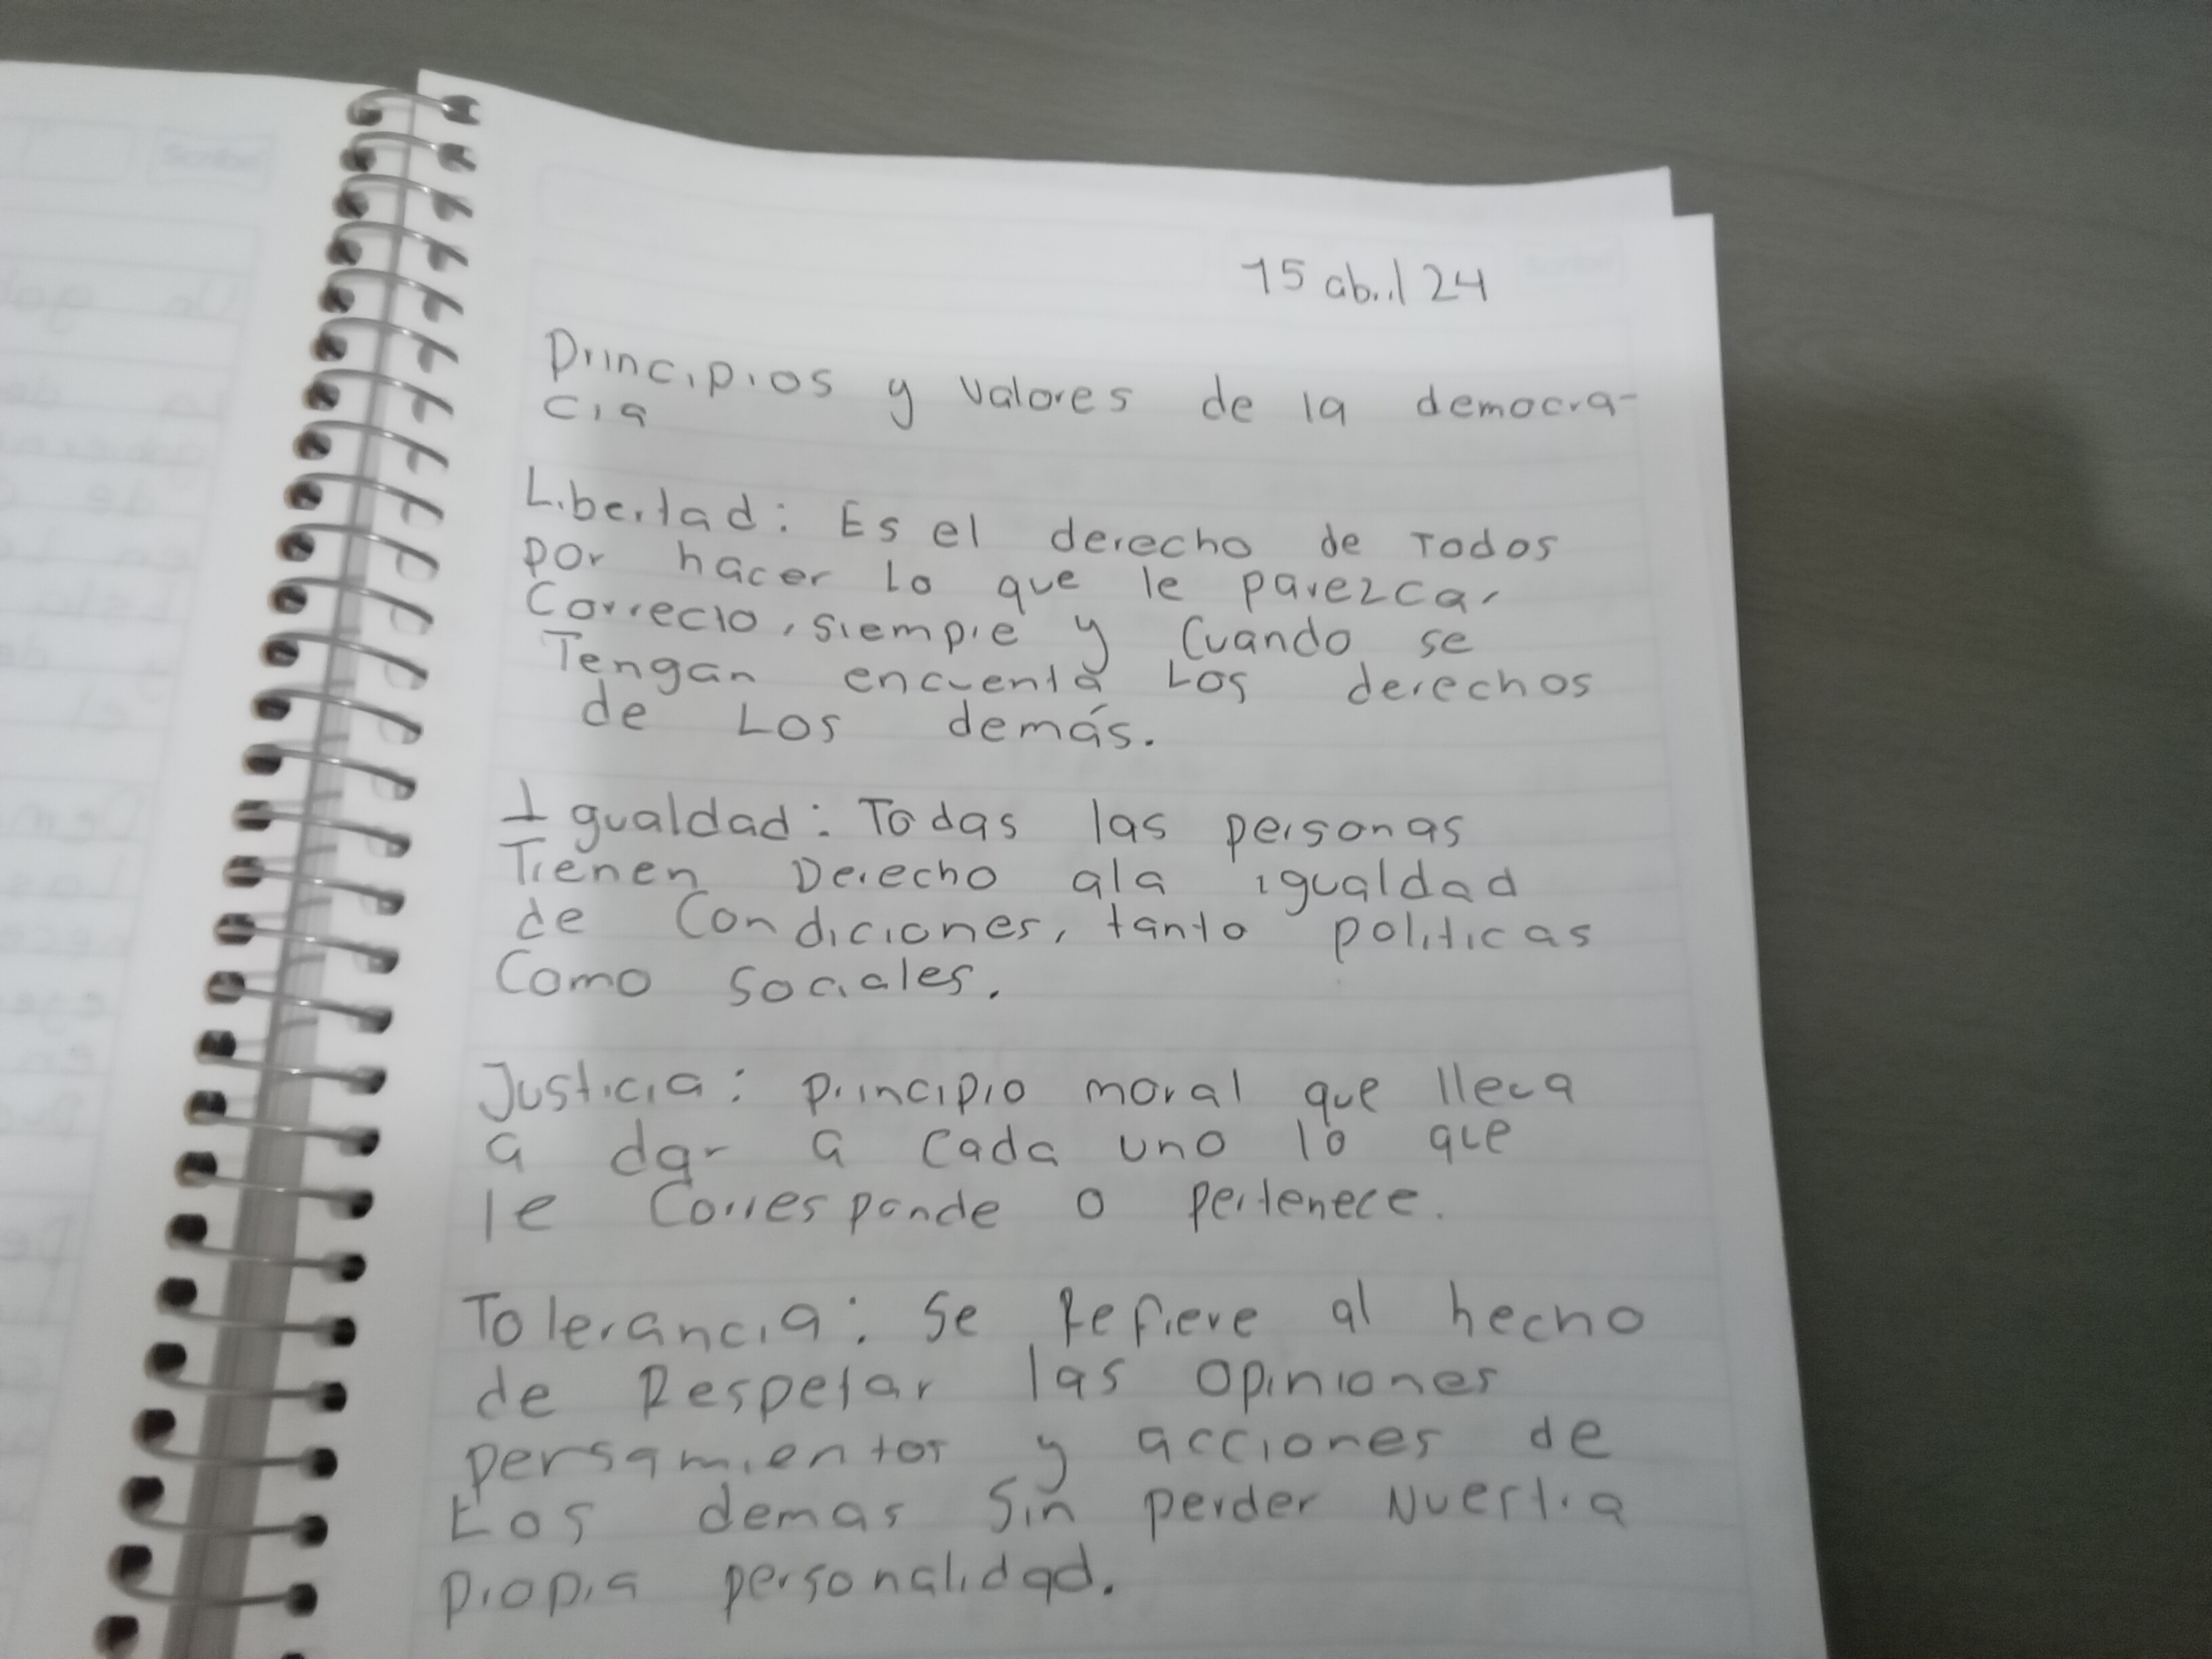 15 abril 24
Principios y Valores de la democra-
cia
Libertad: Es el derecho de Todos
por hacer Lo que le parezca,
Correcto, siempre y Cuando se
Tengan encuenta Los derechos
de Los demás.
Igualdad: Todas las personas
Tienen Derecho ala igualdad
de Condiciones, tanto politicas
Como sociales.
Justicia: principio moral que lleva
a dar a cada uno lo que
le Corresponde o pertenece.
Tolerancia: Se Refiere al hecho
de Respetar las opiniones
pensamientos y acciones de
Los demas Sin perder Nuestra
propia personalidad.